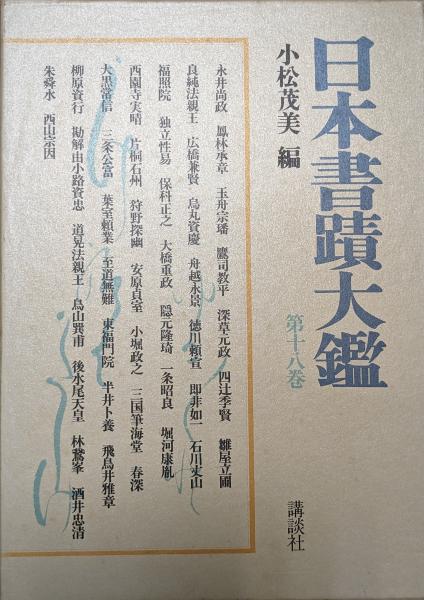 日本書蹟大鑑
第十八巻
小松茂美 編
講談社
永井尚政 鳳林承章 玉舟宗璠 鷹司教平 深草元政 四辻季賢 雛屋立圃
良純法親王 広橋兼賢 烏丸資慶 舟越永景 徳川頼宣 即非如一 石川丈山
福照院 独立性易 保科正之 大橋重政 隠元隆琦 一条昭良 堀河康胤
西園寺実晴 片桐石州 狩野探幽 安原貞室 小堀政之 三国筆海堂 春深
大黒常信 三条公富 葉室頼業 至道無難 東福門院 半井卜養 飛鳥井雅章
柳原資行 勘解由小路資忠 道晃法親王 鳥山巽甫 後水尾天皇 林鵞峯 酒井忠清
朱舜水 西山宗因